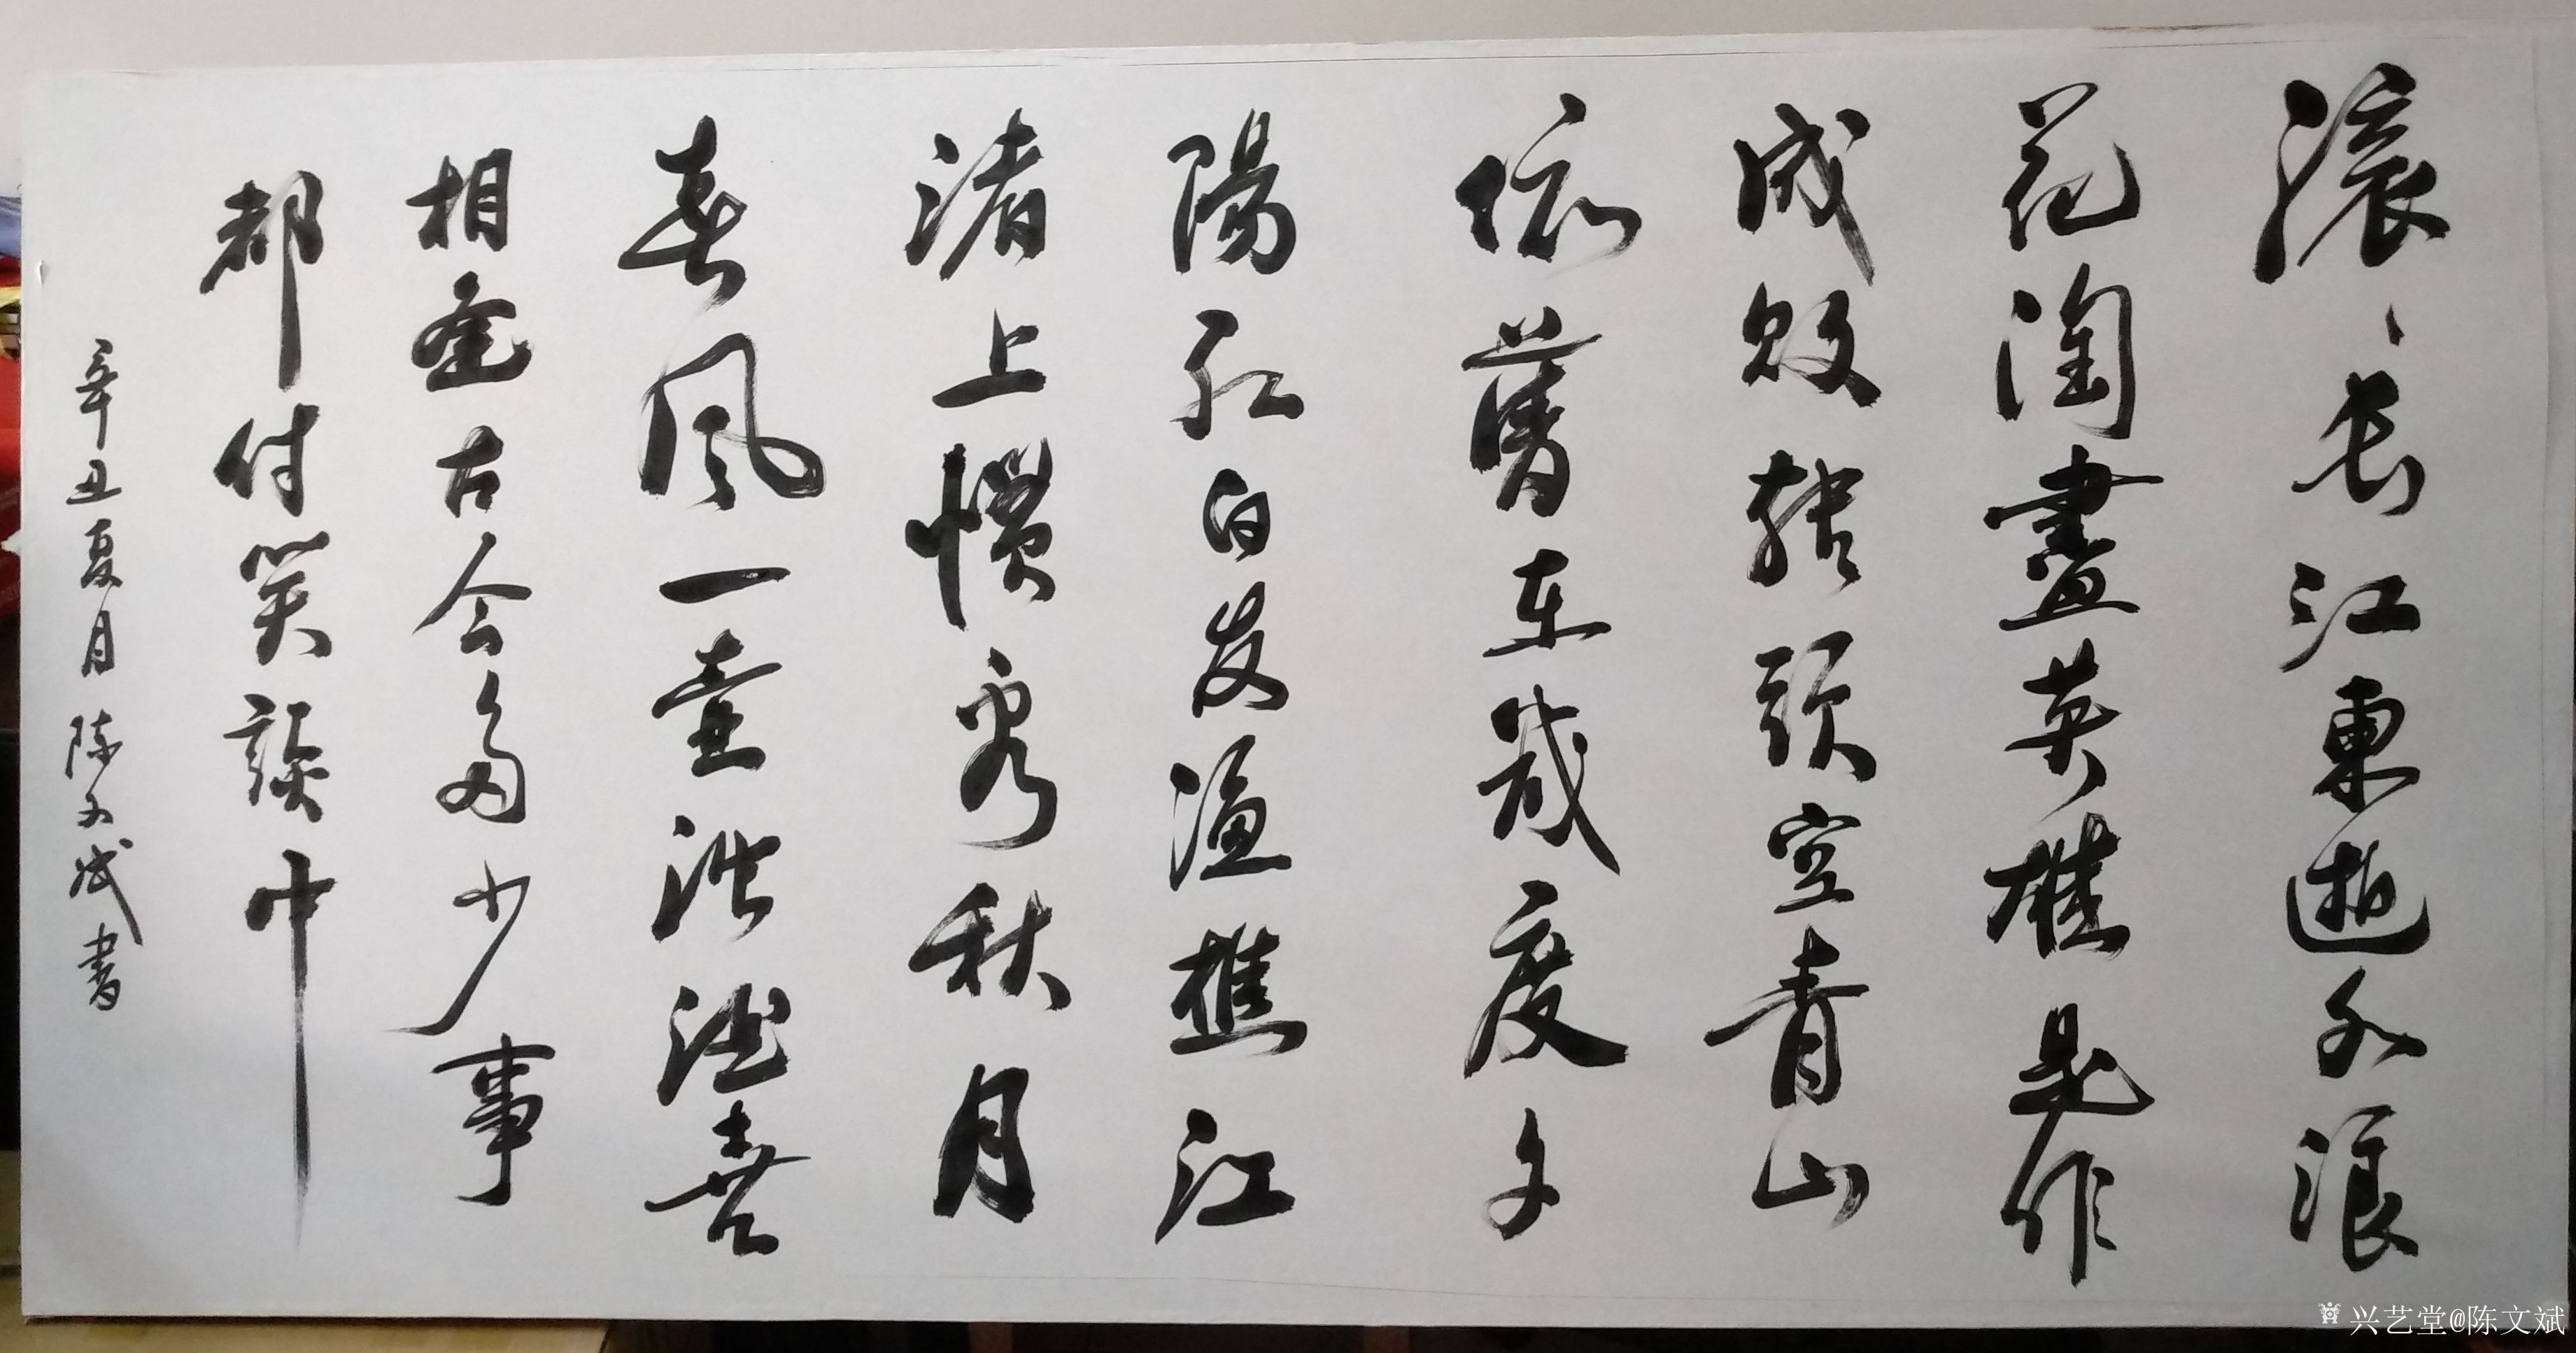 滚、长江東逝水浪
花淘盡英雄是作
成敗转頭空青山
依舊在幾度夕
陽红白发渔樵江
渚上惯看秋月
春风一壶浊酒喜
相逢古今多少事
都付笑談中
辛丑夏月陈文斌書
兴艺堂@陈文斌